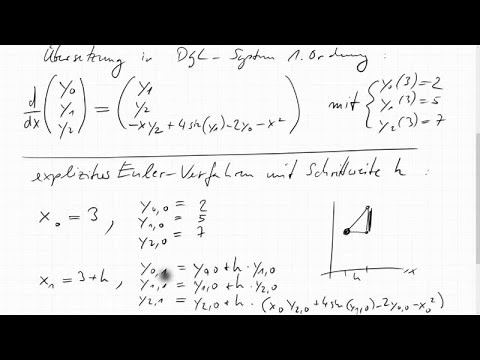 Übersetzung in DGL-System 1. Ordnung:
d/dx (y₀ y₁ y₂) = (y₁ y₂ -xy₂ + 4 sin(y₀) - 2y₀ - x²) mit { y₀(3) = 2
y₁(3) = 5
y₂(3) = 7
explizites Euler-Verfahren mit Schrittweite h:
x₀ = 3, y₀,₀ = 2
y₁,₀ = 5
y₂,₀ = 7
x₁ = 3+h, y₀,₁ = y₀,₀ + h · y₁,₀
y₁,₁ = y₁,₀ + h · y₂,₀
y₂,₁ = y₂,₀ + h · (x₀ y₂,₀ + 4 sin(y₁,₀) - 2y₀,₀ - x₀²)
h
x